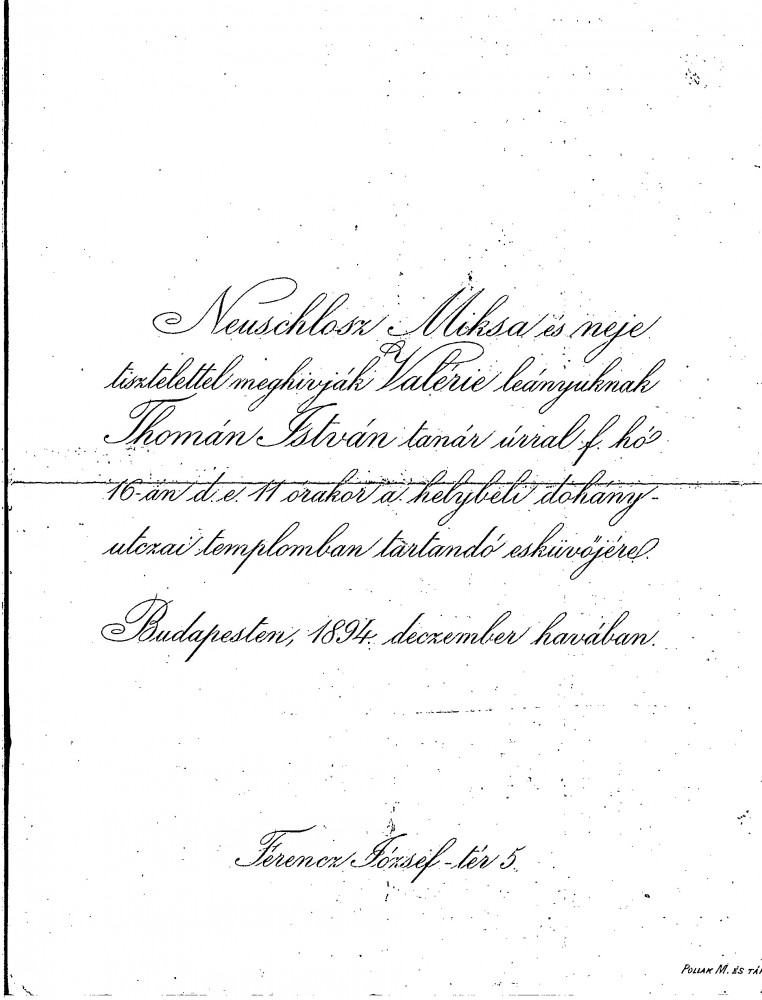 Neuschlosz Miksa és neje
tisztelettel meghivják Valérie leányuknak
Thomán István tanár úrral f. hó
16-án d. e. 11 órakor a helybeli dohány-
utczai templomban tartandó esküvőjére.
Budapesten, 1894. deczember havában.
Ferencz József-tér 5.
POLLAK M. ÉS